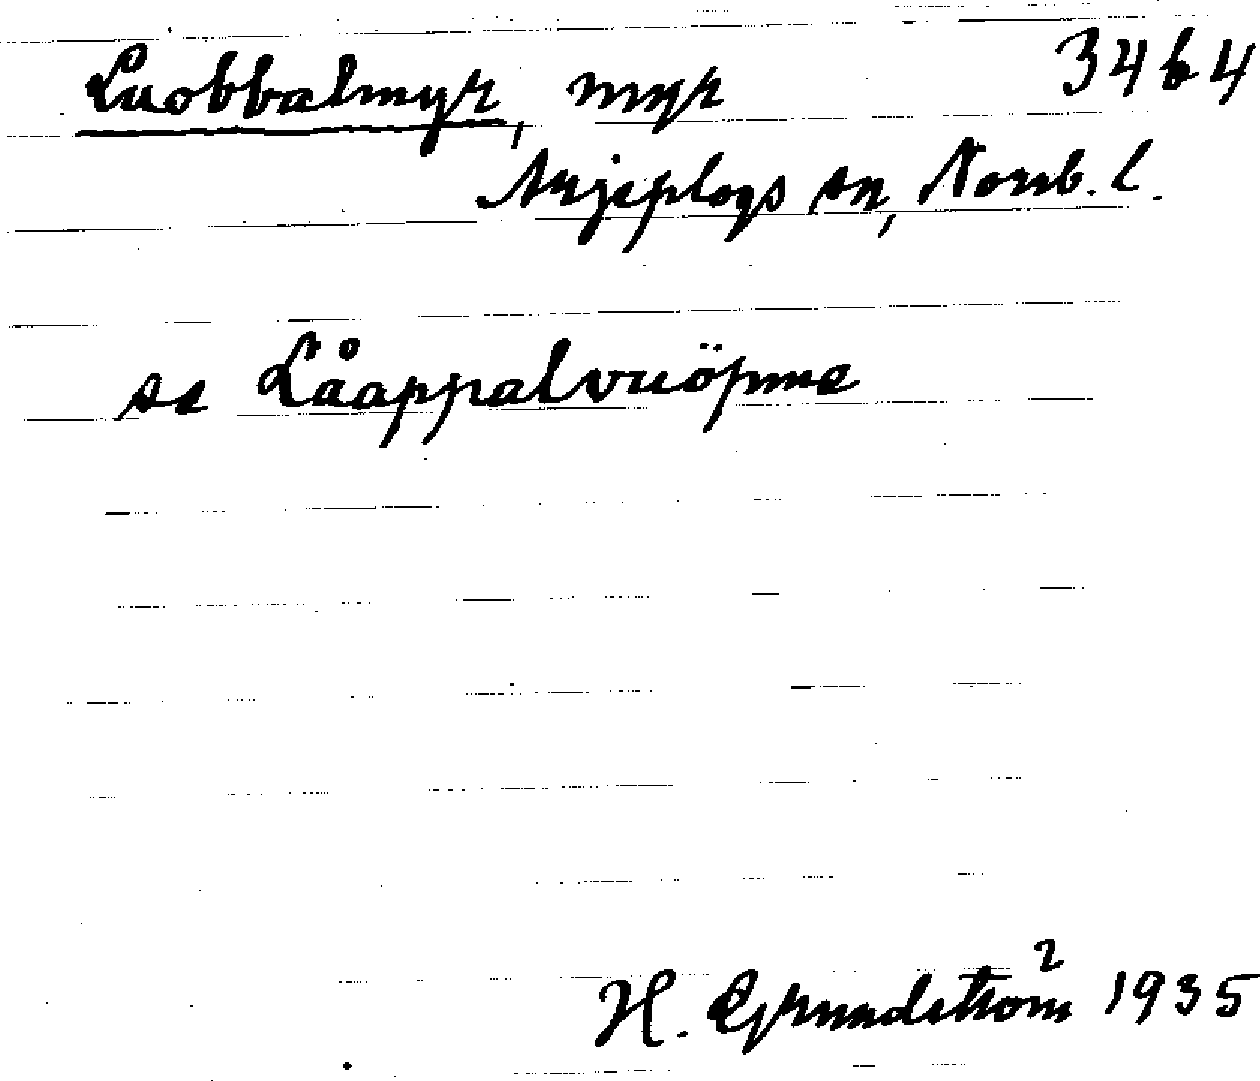 Luobbalmyr, myr 34b4
Arjeplogs sn, Norrb. l.
se Låappalvuöpme
H. Grundström² 1935